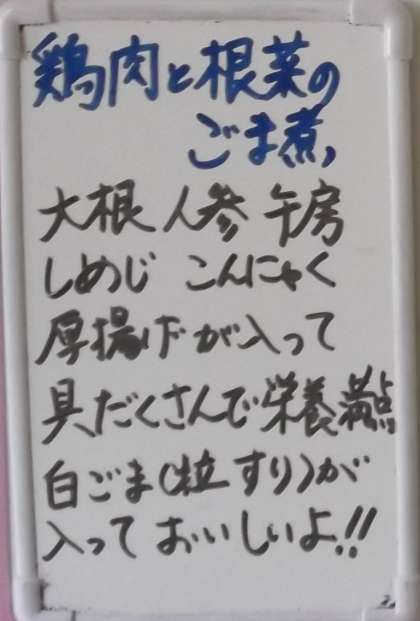 鶏肉と根菜の
ごま煮
大根 人参 午房
しめじ こんにゃく
厚揚げが入って
具だくさんで栄養満点
白ごま(粒 すり)が
入って おいしいよ!!